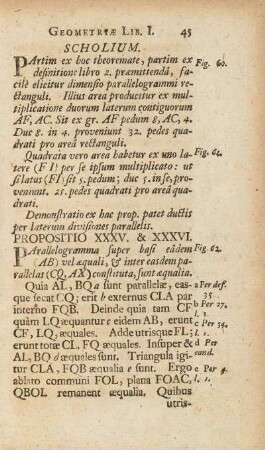 GEOMETRIÆ LIB. I. 45
SCHOLIUM.
PArtim ex hoc theoremate, partim ex Fig. 60.
definitione libro 2. præmittendâ, fa-
cilè elicitur dimensio parallelogrammi re-
ctanguli. Illius area producitur ex multi-
plicatione duorum laterum contiguorum
AF, AC. Sit ex gr. AF pedum 8, AC, 4.
Duc 8. in 4. proveniunt 32. pedes qua-
drati pro area rectanguli.
Quadrata vero area habetur ex uno la- Fig. 61.
tere (FI) per se ipsum multiplicato: ut
si latus (FI) sit 5. pedum; duc 5. in se, pro-
veniunt. 25. pedes quadrati pro area qua-
drati.
Demonstratio ex hac prop. patet ductis
per laterum divisiones parallelis.
PROPOSITIO XXXV. & XXXVI.
PArallelogramma super basi eâdem Fig. 62.
(AB) vel æquali, & inter easdem pa-
rallelas (CQ, AX) constituta, sunt æqualia.
Quia AL, BQ a sunt parallelæ, eas- a Per def.
que secat CQ; erit b externus CLA par 35
interno FQB. Deinde quia tam CF b Per 27.
quàm LQ æquantur c eidem AB, erunt l. 1.
CF, LQ, æquales. Adde utrisque FL; c Per 34.
erunt totæ CL, FQ æquales. Insuper & d Per
AL, BQ d æquales sunt. Triangula igi- eand.
tur CLA, FQB æqualia e sunt. Ergo e Per 4.
ablato communi FOL, plana FOAC, l. 1.
QBOL remanent æqualia. Quibus
utris-